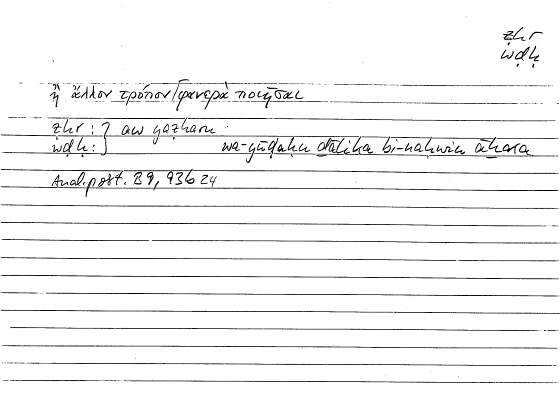 ẓhr
wḍḥ
ἢ ἄλλον τρόπον / φανερὰ ποιῆσαι
ẓhr : } aw yaẓharu
wḍḥ : } wa-yūḍaḥu ḏālika bi-naḥwin āḫara
Anal. post. B 9, 93b24